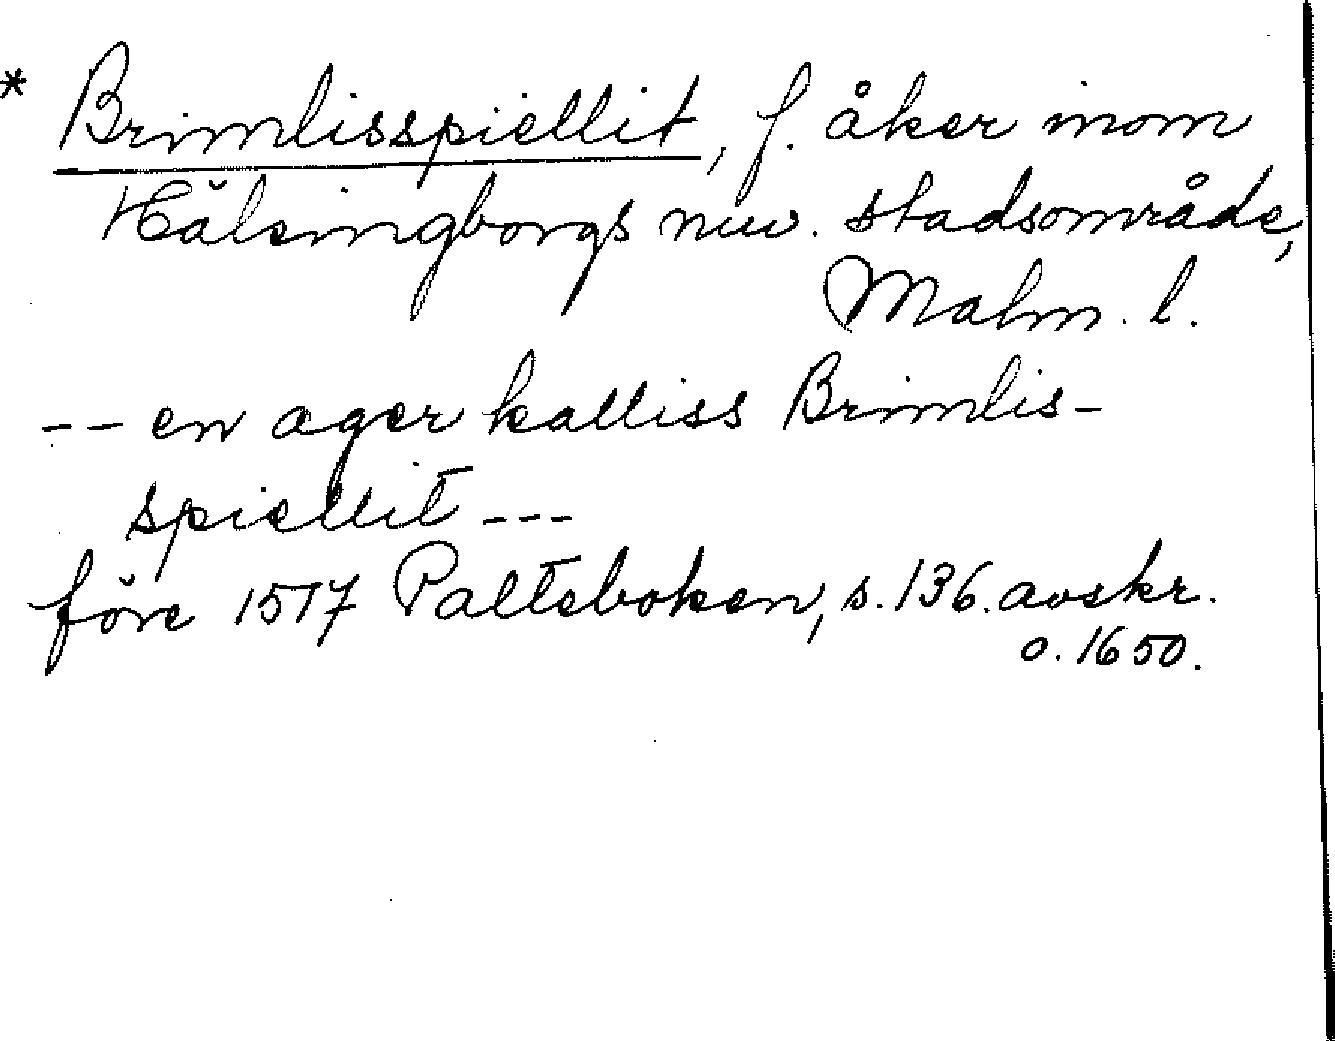 * Brimlisspiellit, f. åker inom
Hälsingborgs nuv. stadsområde,
Malm. l.
-- en ager kalliss Brimlis-
spiellit ---
före 1517 Palteboken, s. 136. avskr.
o. 1650.